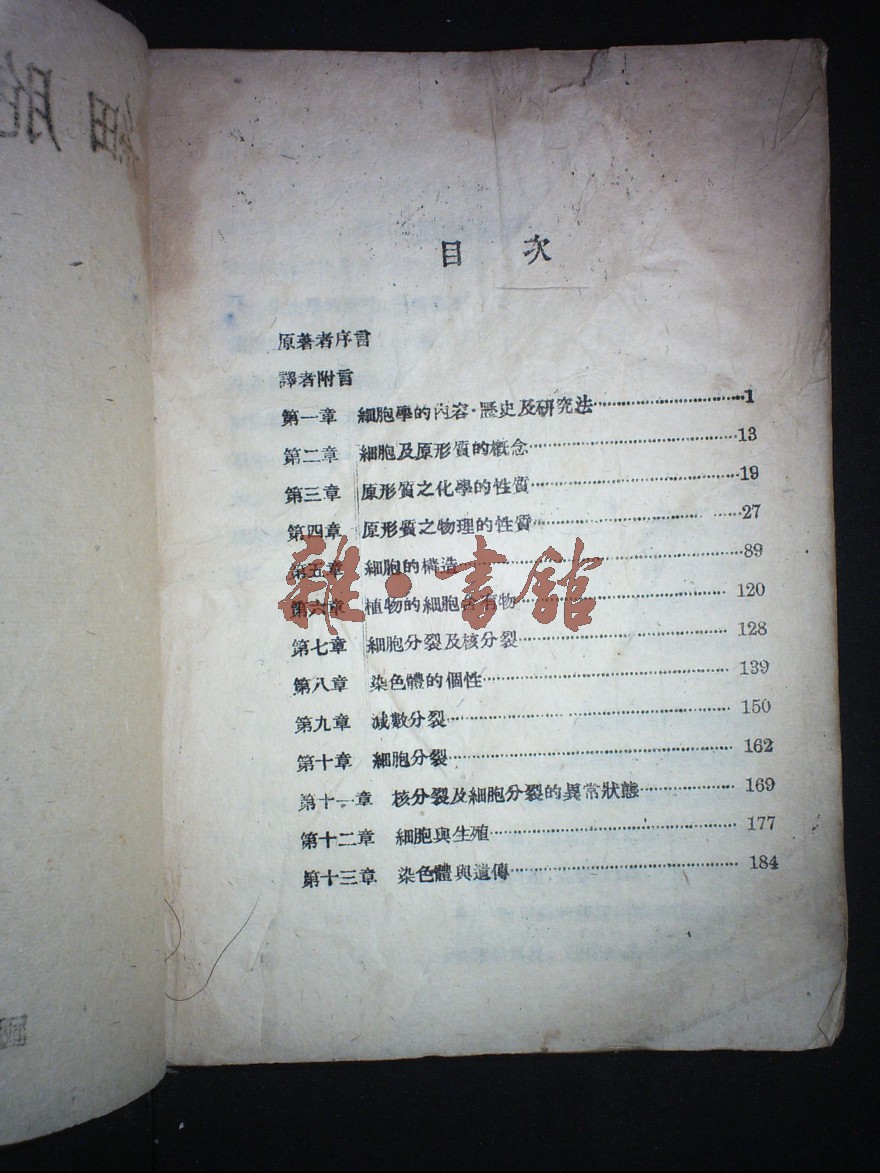 目 次
原著者序言
譯者附言
第一章 細胞學的內容·歷史及研究法 1
第二章 細胞及原形質的概念 13
第三章 原形質之化學的性質 19
第四章 原形質之物理的性質 27
第五章 細胞的構造 89
第六章 植物的細胞含有物 120
第七章 細胞分裂及核分裂 128
第八章 染色體的個性 139
第九章 減數分裂 150
第十章 細胞分裂 162
第十一章 核分裂及細胞分裂的異常狀態 169
第十二章 細胞與生殖 177
第十三章 染色體與遺傳 184
雜·書館
細胞